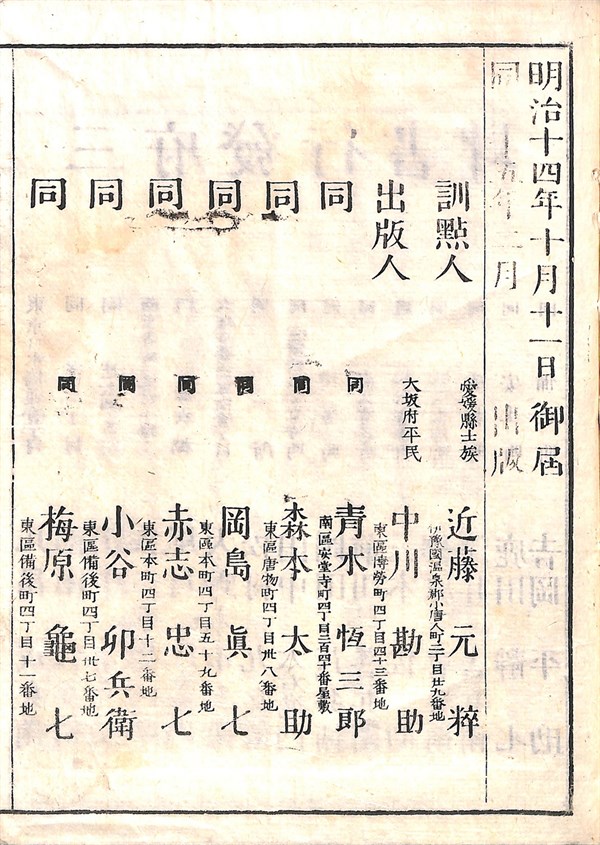 明治十四年十月十一日御届
同 十五年二月 出版
訓點人
愛媛縣士族
近藤元粹
伊豫國温泉郡小唐人町三丁目廿九番地
出版人
大坂府平民
中川勘助
東區博勞町四丁目四十三番地
同
同
青木恆三郎
南區安堂寺町四丁目二百四十番屋敷
同
同
森本太助
東區唐物町四丁目卅八番地
同
同
岡島眞七
東區本町四丁目五十九番地
同
同
赤志忠七
東區本町四丁目十二番地
同
同
小谷卯兵衛
東區備後町四丁目卅七番地
同
同
梅原龜七
東區備後町四丁目十一番地